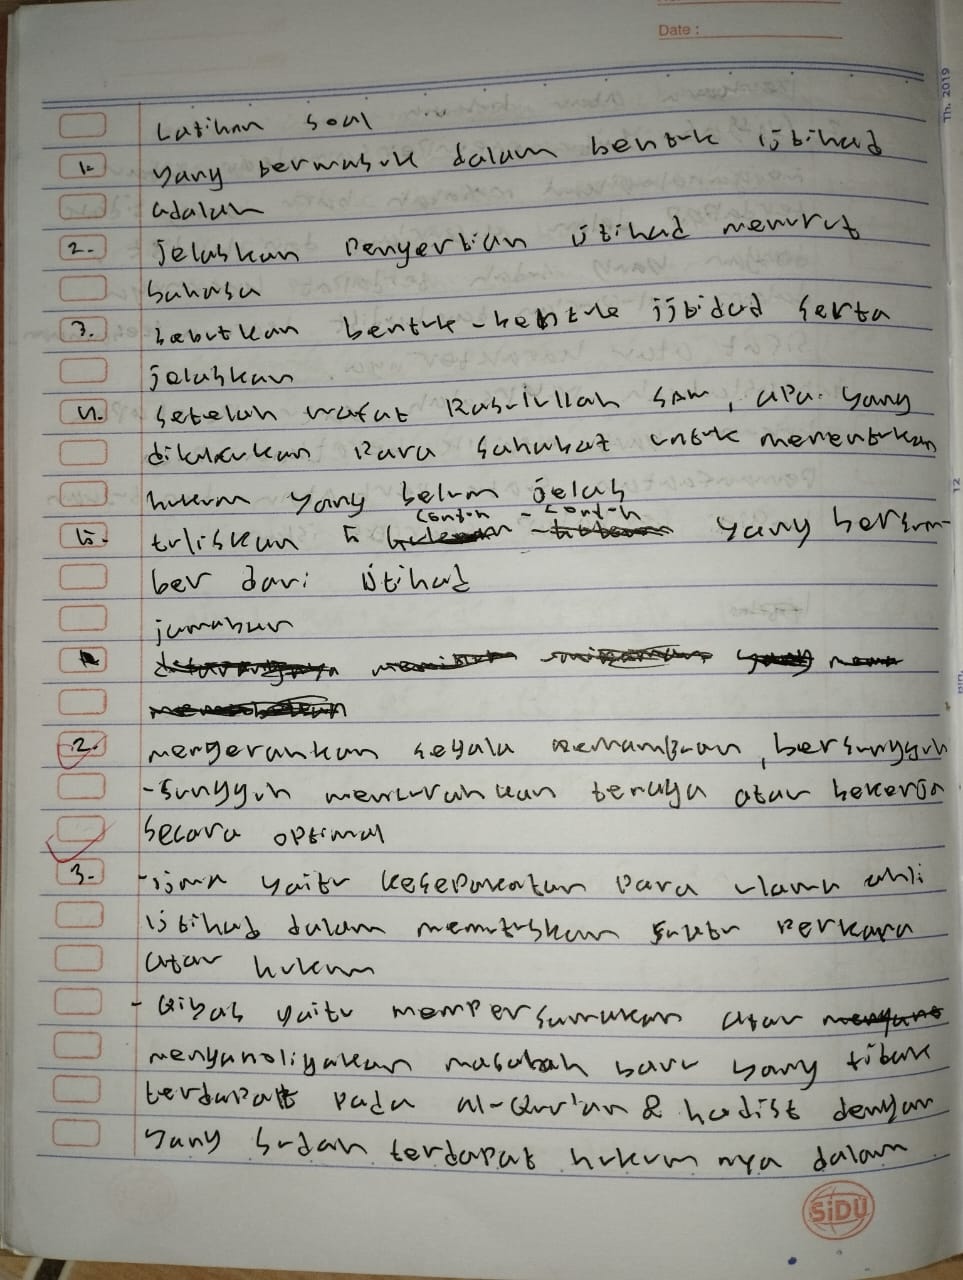 Date :
Th. 2019
Latihan soal
1. yang bermasuk dalam bentuk ijtihad
adalah
2. jelaskan Pengertian ijtihad menurut
bahasa
3. sebutkan bentuk-bentuk ijtidad serta
jelaskan
4. setelah wafat Rasulullah SAW, apa yang
dilakukan Para sahabat untuk menentukan
hukum yang belum jelas
contoh - contoh
5. tuliskan 5 yang bersum-
ber dari ijtihad
jawaban
2. mengerahkan segala kemampuan, bersungguh
-sungguh mencurahkan tenaga atau bekerja
secara optimal
3. -ijma yaitu kesepakatan Para ulama ahli
ijtihad dalam memutuskan suatu Perkara
atau hukum
- Qiyas yaitu mempersamakan atau
menganaligikan masalah baru yang tidak
terdapat pada al-Qur'an & hadist dengan
yang sudah terdapat hukum nya dalam
12
SiDU